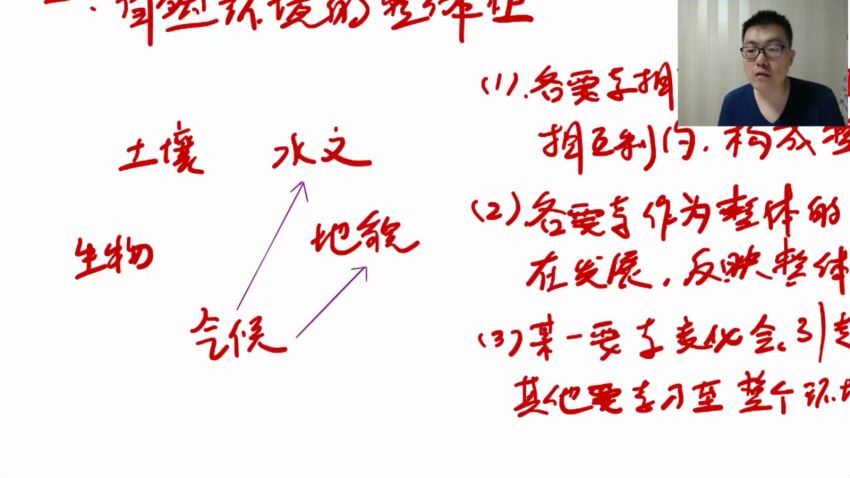 一.自然环境的整体性
(1).各要素相
相互制约,构成整
土壤 水文
(2)各要素作为整体的
地貌
生物
在发展,反映整体
气候
(3)某一要素变化会引起
其他要素乃至整个环境